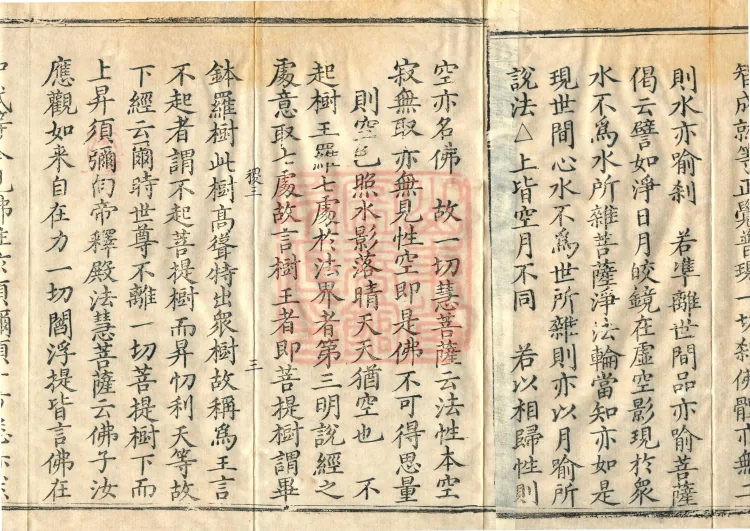 智成就等正覺普現一切刹佛體亦無二
則水亦喻刹　若準離世間品亦喻菩薩
偈云譬如淨日月皎鏡在虛空影現於衆
水不爲水所雜菩薩淨法輪當知亦如是
現世間心水不爲世所雜則亦以月喻所
說法△上皆空月不同　若以相歸性則
空亦名佛　故一切慧菩薩云法性本空
寂無取亦無見性空即是佛不可得思量
則空色照水影落晴天天猶空也　不
起樹王羅七處於法界者第三明說經之
處意取上處故言樹王者即菩提樹謂畢
稷三
三
鉢羅樹此樹高聳特出衆樹故稱爲王言
不起者謂不起菩提樹而昇忉利天等故
下經云爾時世尊不離一切菩提樹下而
上昇須彌向帝釋殿法慧菩薩云佛子汝
應觀如来自在力一切閻浮提皆言佛在